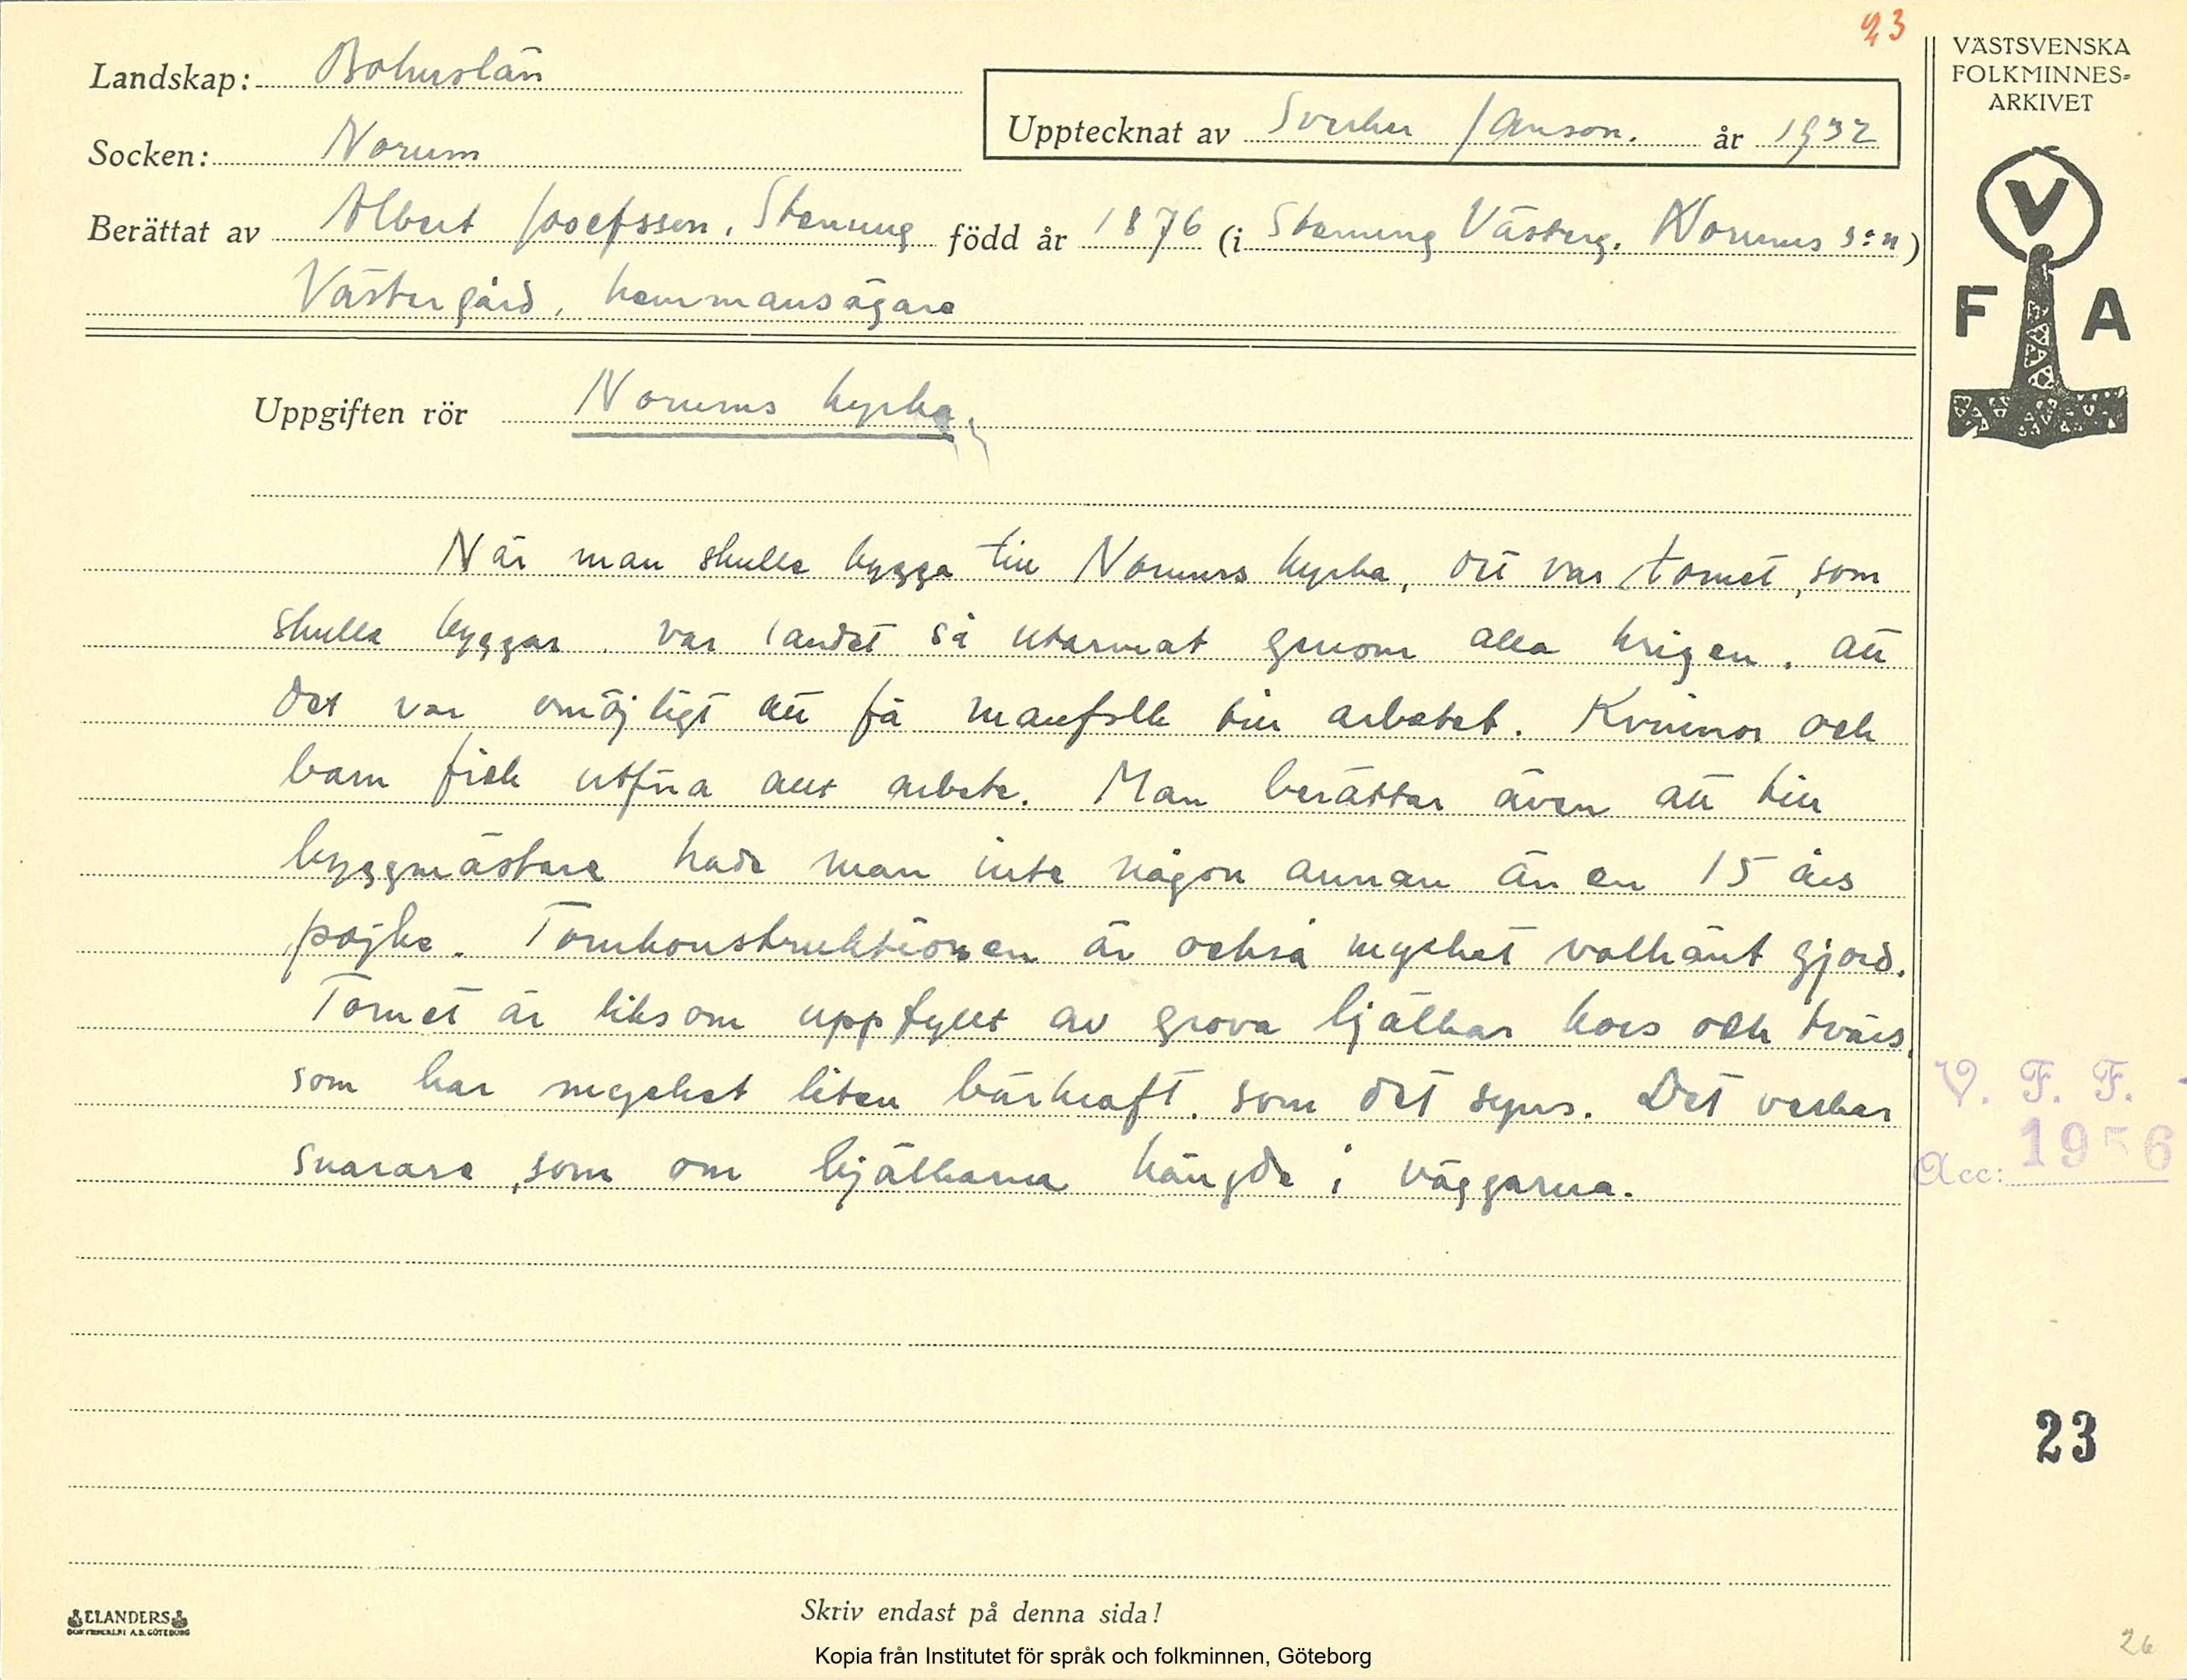 23
VÄSTSVENSKA
FOLKMINNES-
ARKIVET
V
F A
Landskap: Bohuslän
Upptecknat av Sverker Janson. år 1932
Socken: Norum
Berättat av Albert Josefsson, Stenung född år 1876 (i Stenung Västerg. Norums s:n)
Västergård, hemmansägare
Uppgiften rör Norums kyrka
När man skulle bygga till Norums kyrka, det var tornet, som
skulle byggas, var landet så utarmat genom alla krigen, att
det var omöjligt att få manfolk till arbetet. Kvinnor och
barn fick utföra allt arbete. Man berättar även att till
byggmästare hade man inte någon annan än en 15 års
pojke. Tornkonstruktionen är också mycket valhänt gjord.
Tornet är liksom uppfyllt av grova bjälkar kors och tvärs,
som har mycket liten bärkraft, som det syns. Det verkar
snarare, som om bjälkarna hängde i väggarna.
V. F. F.
Acc: 1956
23
Skriv endast på denna sida!
ELANDERS
BOKTRYCKERI A.B. GÖTEBORG
Kopia från Institutet för språk och folkminnen, Göteborg
26